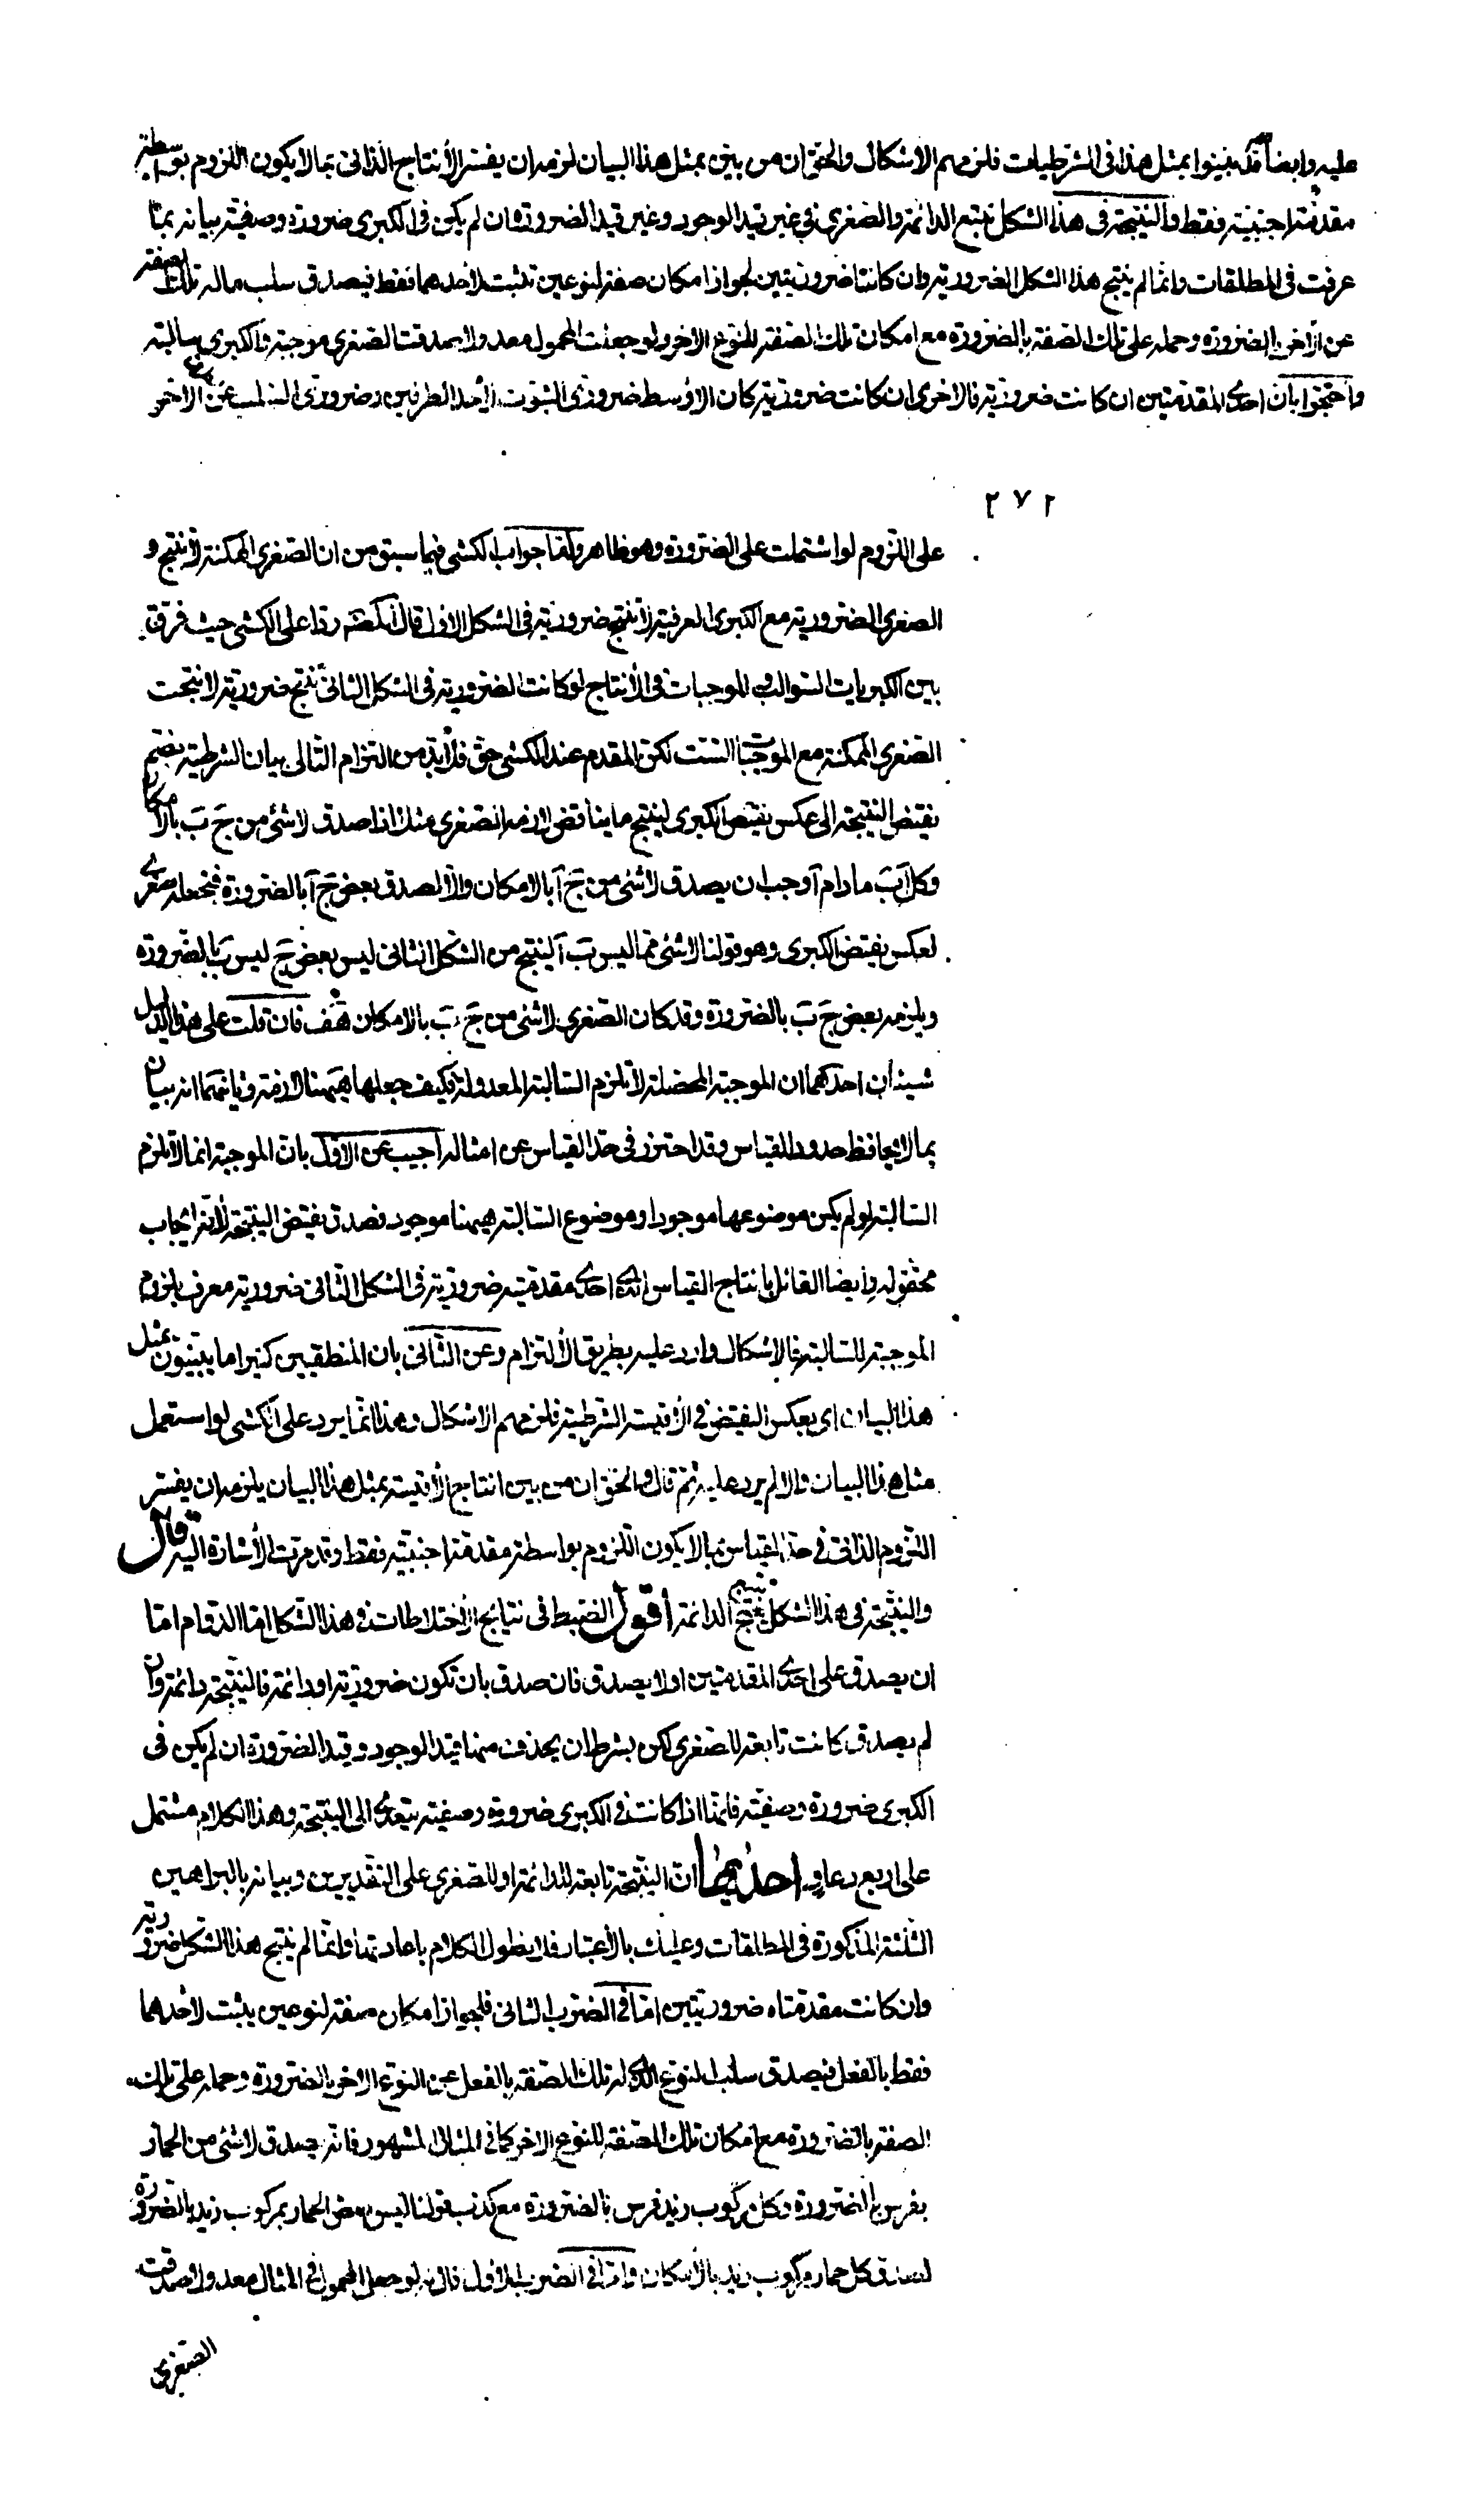 عليه وايضا قد بينوا بمثل هذا فى الشرطيات فلزمهم الاشكال والحق ان من بين بمثل هذا البيان لزمه ان يفسر الأنتاج الذاتى بما لا يكون اللزوم بواسطة
مقدمة اجنبية فقط والنتيجة فى هذا الشكل تتبع الدائمة والصغرى فى غير قيد الوجود وغير قيد الضرورة ان لم يكن فى الكبرى ضرورة وصفية بيانه بما
عرفت فى المطلقات وانما لم ينتج هذا الشكل الضرورية وان كانتا ضروريتين لجواز امكان صفة لنوعين تثبت لأحدهما فقط فيصدق سلب ماله تلك الصفة
عن الآخر بالضرورة وحمله على تلك الصفة بالضرورة مع امكان تلك الصفة للنوع الاخر ولو جعلت المحمول معدولا صدقت الصغرى موجبة والكبرى سالبة
واحتجوا بان احدى المقدمتين ان كانت ضرورية فالاخرى ان كانت ضرورية كان الاوسط ضرورى الثبوت لأحد الطرفين وضرورى السلب عن الاخر
٢٧٢
على اللزوم لو اشتملت على الضرورة وهو ظاهر واما جواب الكشى فيما سبق من ان الصغرى الممكنة لا تنتج و
الصغرى الضرورية مع الكبرى العرفية لا تنتج ضرورية فى الشكل الاول قال المصنف ردا على الكشى حيث فرق
بين الكبريات السوالب والموجبات فى الأنتاج لو كانت الضرورية فى الشكل الثانى تنتج ضرورية لأنتجت
الصغرى الممكنة مع الموجبات الست لكن المقدم عند الكشى حق فلا بد من التزام التالى بيان الشرطية بضم
نقيض النتيجة الى عكس نقيض الكبرى لينتج ما يناقض لازم الصغرى مثلا اذا صدق لا شئ من جَ بَ بالامكان
وكل آ بَ ما دام آ وجب ان يصدق لا شئ من جَ آ بالامكان والا لصدق بعض جَ آ بالضرورة فنجعله صغرى
لعكس نقيض الكبرى وهو قولنا لا شئ مما ليس بَ آ لينتج من الشكل الثانى ليس بعض جَ ليس بَ بالضرورة
ويلزمه بعض جَ بَ بالضرورة وقد كان الصغرى لا شئ من جَ بَ بالامكان هف فان قلت على هذا الدليل
شيئان احدهما ان الموجبة المحصلة لا تلزم السالبة المعدولة فكيف جعلها ههنا لازمة وثانيهما انه بيان
بما لا يحافظ حدود القياس وقد احترز فى حد القياس عن امثاله اجيب عن الاول بان الموجبة انما لا تلزم
السالبة لو لم يكن موضوعها موجودا وموضوع السالبة ههنا موجود لصدق نقيض النتيجة لأنه ايجاب
محقق له وايضا القائل بانتاج القياس الذى احدى مقدمتيه ضرورية فى الشكل الثانى ضرورية معرف بلزوم
الموجبة للسالبة فالاشكال وارد عليه بطريق الألتزام وعن الثانى بان المنطقيين كثيرا ما يبينون بمثل
هذا البيان اى بعكس النقيض فى الأقيسة الشرطية فلزمهم الاشكال وهذا انما يرد على الكشى لو استعمل
مثل هذا البيان والا لم يرد عليه ثم قال والحق ان من بين انتاج الأقيسة بمثل هذا البيان يلزمه ان يفسر
اللزوم الذاتى فى حد القياس بما لا يكون اللزوم بواسطة مقدمة اجنبية فقط وقد مرت الأشارة اليه قال
والنتيجة فى هذا الشكل تتبع الدائمة أقول الضبط فى نتايج الأختلاطات فى هذا الشكل اما الدوام اما
ان يصدق على احدى المقدمتين اولا يصدق فان صدق بان تكون ضرورية او دائمة فالنتيجة دائمة وان
لم يصدق كانت تابعة للصغرى لكن بشرط ان يحذف منها قيد الوجود وقيد الضرورة ان لم يكن فى
الكبرى ضرورة وصفية فانها اذا كانت فى الكبرى ضرورة وصفية يتعدى الى النتيجة وهذا الكلام مشتمل
على اربع دعاو احديها ان النتيجة تابعة للدائمة او للصغرى على التقديرين وبيانه بالبراهين
الثلثة المذكورة فى المطلقات وعليك بالأعتبار فلا يطول الكلام باعادتها وانما لم ينتج هذا الشكل ضرورية
وان كانت مقدمتاه ضروريتين اما فى الضرب الثانى فلجواز امكان صفة لنوعين يثبت لأحدهما
فقط بالفعل فيصدق سلب النوع الذى له تلك الصفة بالفعل عن النوع الاخر بالضرورة وحمله على تلك
الصفة بالضرورة مع امكان تلك الصفة للنوع الاخر كما فى المثال المشهور فانه يصدق لا شئ من الحمار
بفرس بالضرورة وكل مركوب زيد فرس بالضرورة مع كذب قولنا ليس بعض الحمار بمركوب زيد بالضرورة
لصدق كل حمار مركوب زيد بالأمكان واما فى الضرب الأول فلانه لو جعل المحمول فى المثال معدولا صدقت
الصغرى